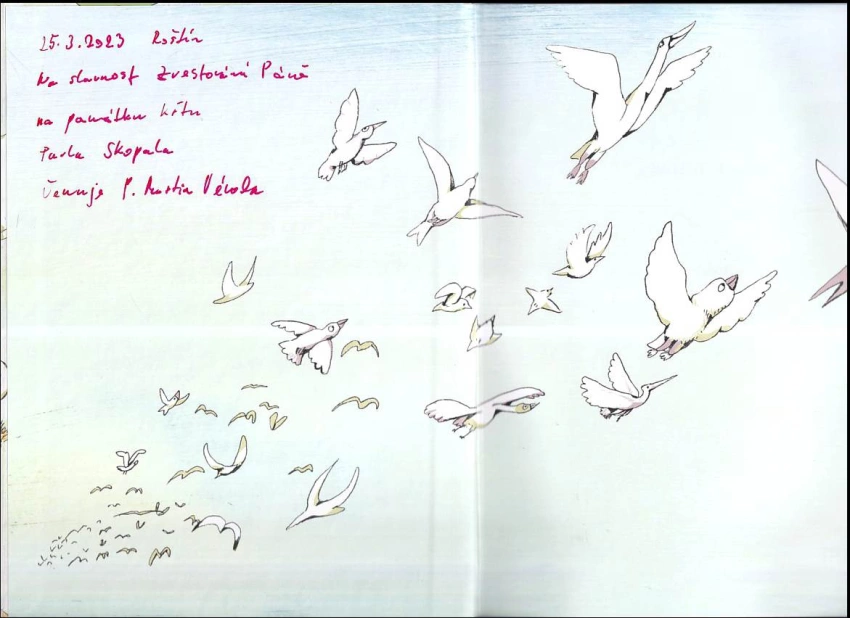 25.3.2023 Roštín
Na slavnost Zvestování Páně
na památku křtu
Pavla Skopala
Věnuje P. Martin